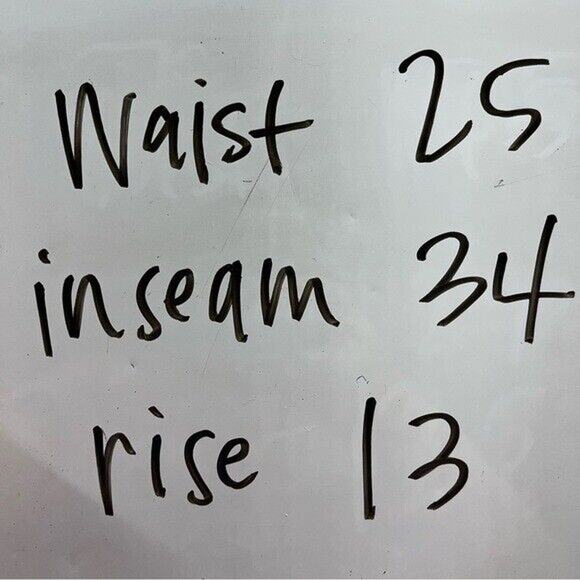 Waist 25
inseam 34
rise 13